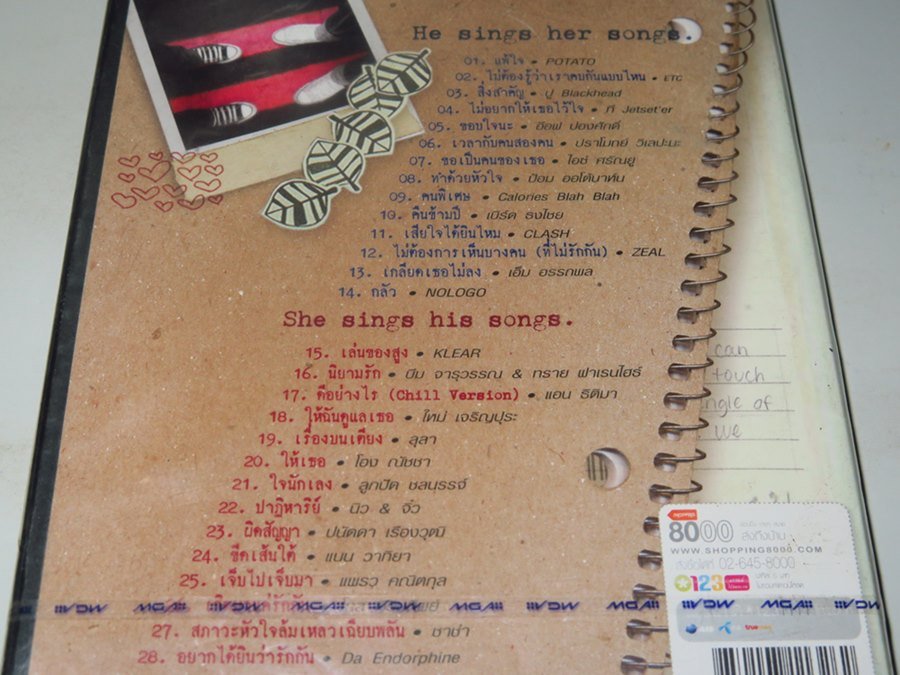 He sings her songs.
01. แพ้ใจ • POTATO
02. ไม่ต้องรู้ว่าเราคบกันแบบไหน • ETC
03. สิ่งสำคัญ • ปู Blackhead
04. ไม่อยากให้เธอไว้ใจ • ที Jetset'er
05. ขอบใจนะ • อ๊อฟ ปองศักดิ์
06. เวลากับคนสองคน • ปราโมทย์ วิเลปะนะ
07. ขอเป็นคนของเธอ • ไอซ์ ศรัณยู
08. ทำด้วยหัวใจ • ป๊อบ ออโต้บาห์น
09. คนพิเศษ • Calories Blah Blah
10. คืนข้ามปี • เบิร์ด ธงไชย
11. เสียใจได้ยินไหม • CLASH
12. ไม่ต้องการเห็นบางคน (ที่ไม่รักกัน) • ZEAL
13. เกลียดเธอไม่ลง • เอ็ม อรรถพล
14. กลัว • NOLOGO
She sings his songs.
15. เล่นของสูง • KLEAR
16. นิยามรัก • บีม จารุวรรณ & ทราย ฟาเรนไฮธ์
17. ดีอย่างไร (Chill Version) • แอน ธิติมา
18. ให้ฉันดูแลเธอ • ใหม่ เจริญปุระ
19. เรื่องบนเตียง • ลุลา
20. ให้เธอ • โอง ณัชชา
21. ใจนักเลง • ลูกปัด ชลนรรจ์
22. ปาฏิหาริย์ • นิว & จิ๋ว
23. ผิดสัญญา • ปนัดดา เรืองวุฒิ
24. ขีดเส้นใต้ • แนน วาทิยา
25. เจ็บไปเจ็บมา • แพรว คณิตกุล
27. สภาวะหัวใจล้มเหลวเฉียบพลัน • ซาซ่า
28. อยากได้ยินว่ารักกัน • Da Endorphine
can
touch
ngle of
we
SHOPPING
8000
ส่งถึงบ้าน
WWW.SHOPPING8000.COM
สั่งซื้อโทร์ 02-645-8000
123
MGA MGA MGA MGA MGA MGA
true